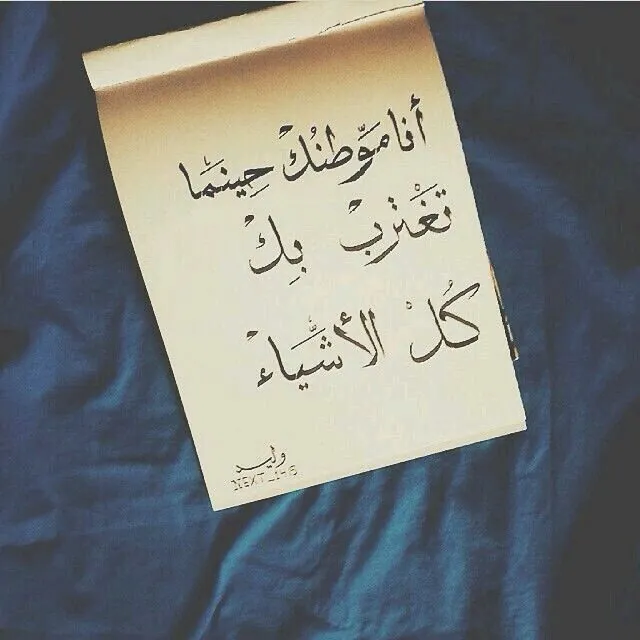 أنا مَوّطنُكْ حِينَمَا
تَغْترِبْ بِكْ
كُلْ الأشّيَاءْ
وليد